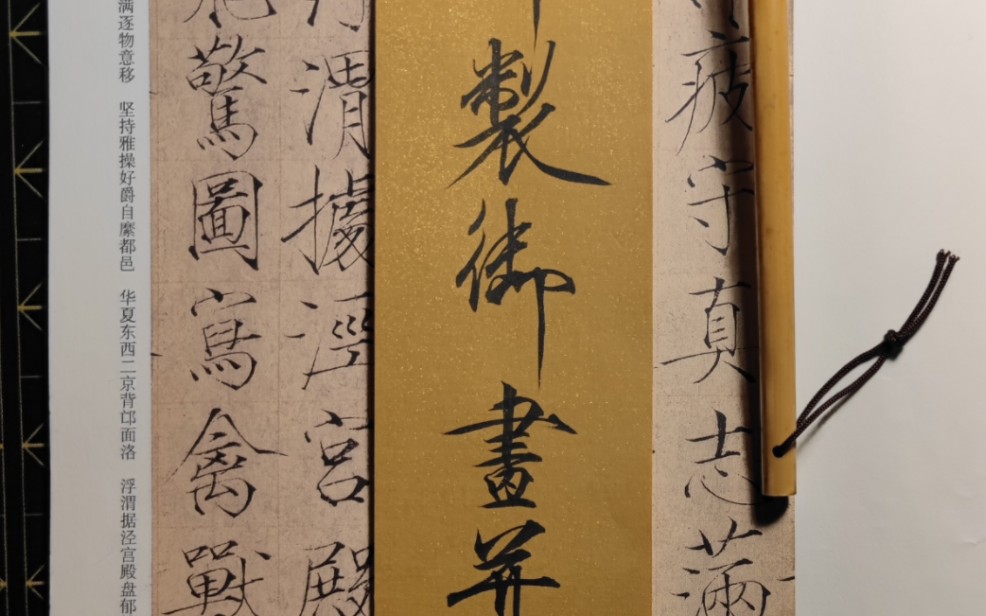 疲守真志滿
製御畫并
渭據涇宮殿
驚圖寫禽獸
满逐物意移 坚持雅操好爵自縻都邑 华夏东西二京背邙面洛 浮渭据泾宫殿盘郁